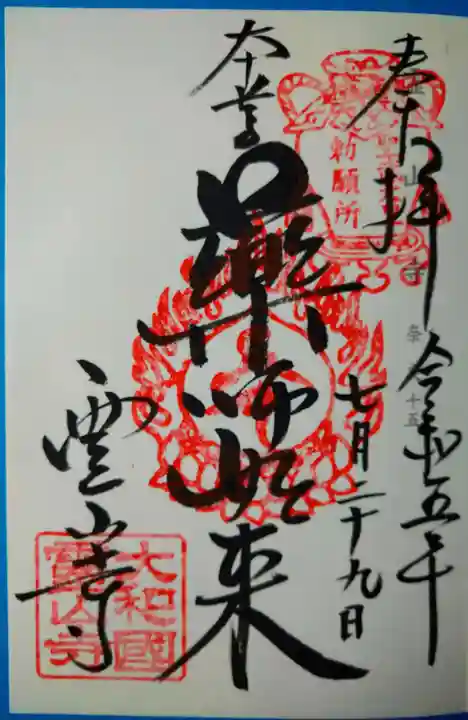 奉拝
令和五年
七月二十九日
勅願所
本尊
薬師如来
霊山寺
大和國
霊山寺
山寺
奈
十五